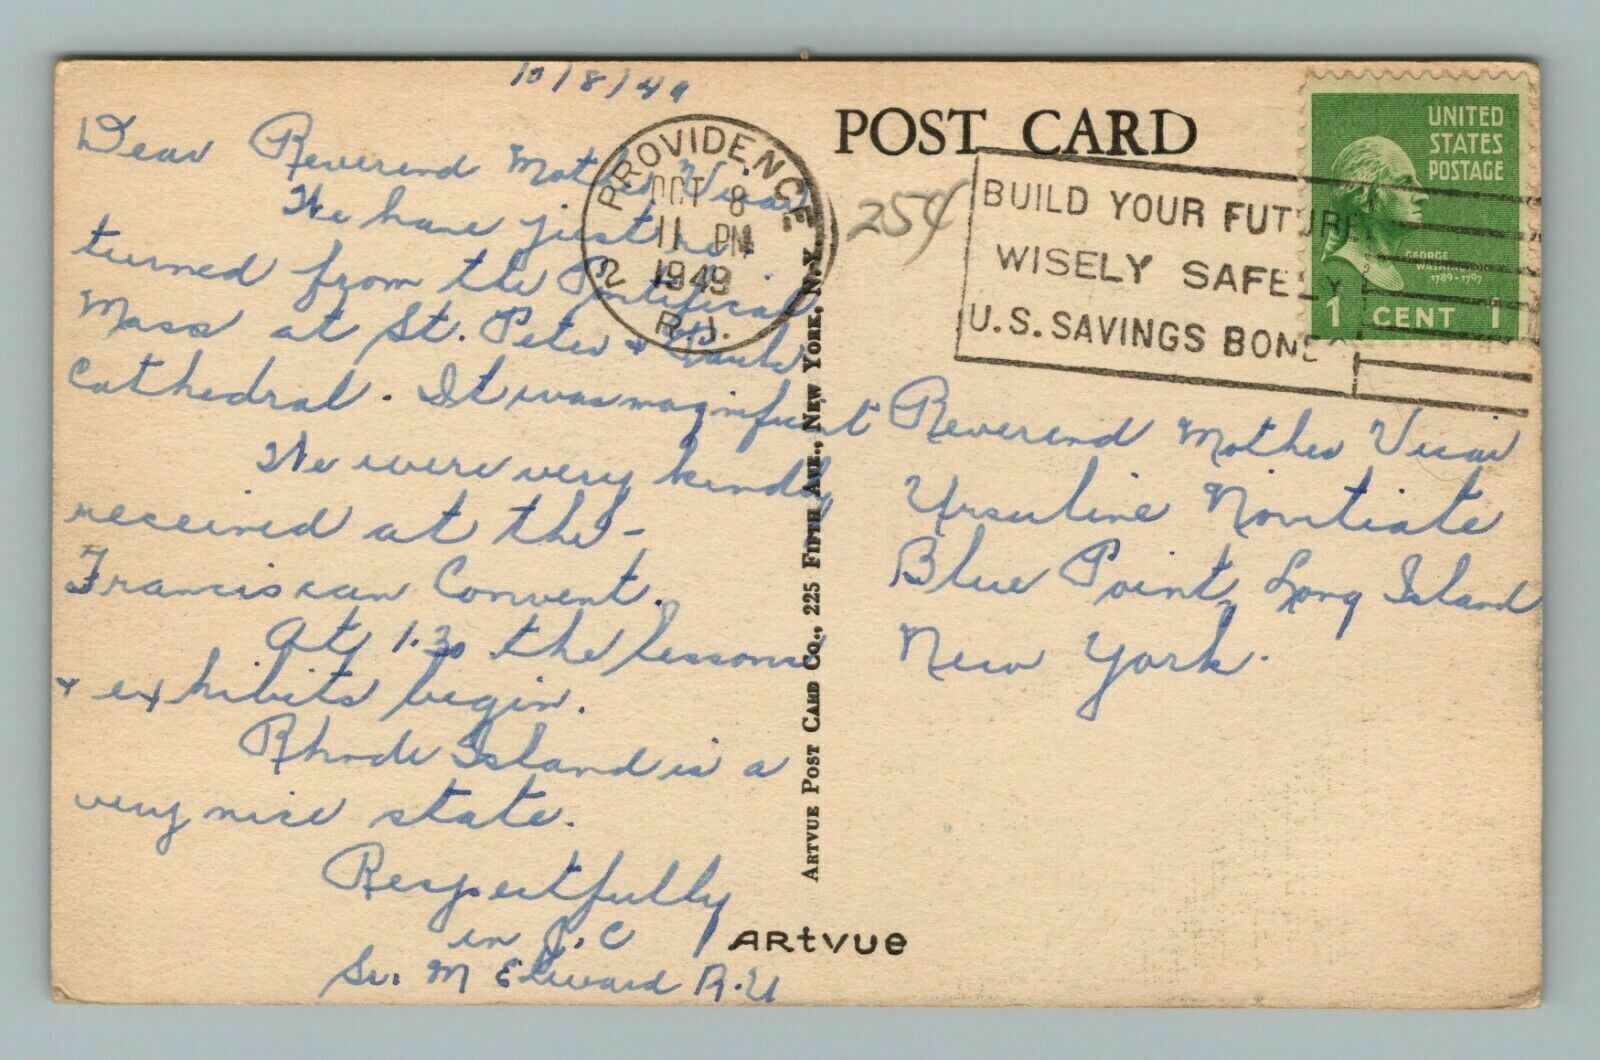 10/8/49
Dear Reverend Mother Vicar
We have just re-
turned from the Pontifical
Mass at St. Peter & Paul's
Cathedral. It was magnificent
We were very kindly
received at the-
Franciscan Convent.
At 1.30 the lessons
& exhibits begin.
Rhode Island is a
very nice state.
Respectfully
in J.C
Sr. M Edward R.U
PROVIDENCE
OCT 8
11 PM
1949
2 R.I.
ARTVUE POST CARD CO., 225 FIFTH AVE., NEW YORK, N.Y.
ARtVUE
POST CARD
25¢
BUILD YOUR FUTURE
WISELY SAFELY
U.S. SAVINGS BONDS
UNITED
STATES
POSTAGE
GEORGE
WASHINGTON
1789-1797
1 CENT 1
Reverend Mother Vicar
Ursuline Novitiate
Blue Point, Long Island
New York.